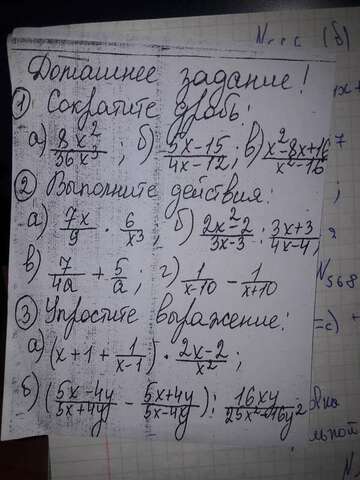 № (б)
Домашнее задание!
① Сократите дробь:
а) 8x²/36x³; б) 5x-15/4x-12; в) x²-8x+16/x²-16
② Выполните действия:
а) 7x/9 · 6/x³, б) 2x²-2/3x-3 : 3x+3/4x-4,
в) 7/4a + 5/a; г) 1/x-10 - 1/x+10
№568
③ Упростите выражение:
а) (x+1+1/x-1) · 2x-2/x²;
б) (5x-4y/5x+4y - 5x+4y/5x-4y) : 16xy/25x²-16y²
льной